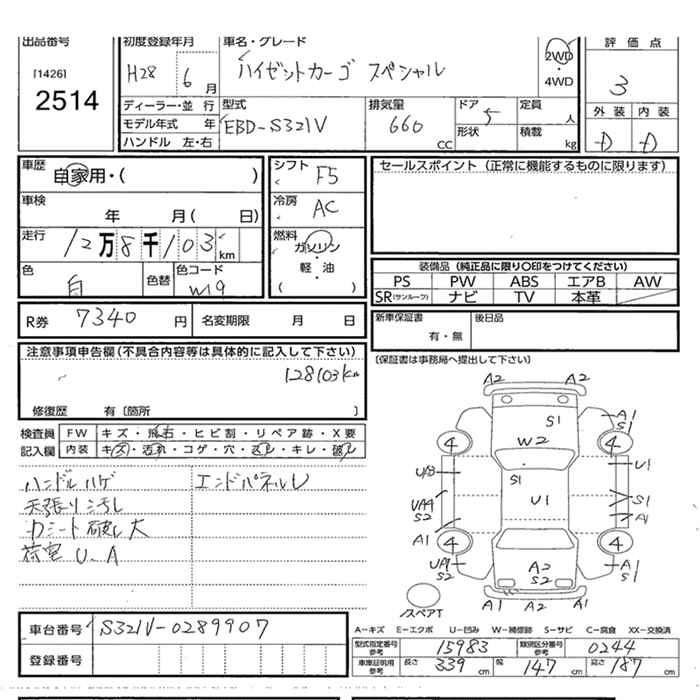 出品番号 初度登録年月 車名・グレード 2WD ・ 4WD 評価点
[1426] 2514 H28 6月 ハイゼットカーゴ スペシャル 3
ディーラー・並行 型式 排気量 ドア 定員 人 外装 内装
モデル年式 年 EBD-S321V 660 CC 5 形状 積載 kg D D
ハンドル 左・右
車歴 自家用・( ) シフト F5 セールスポイント (正常に機能するものに限ります)
車検 年 月( 日) 冷房 AC
走行 12万8千103km 燃料 ガソリン・軽油 ( )
装備品 (純正品に限り○印をつけてください)
色 白 色替 色コード W19 PS PW ABS エアB AW
SR(サンルーフ) ナビ TV 本革
R券 7340円 名変期限 月 日 新車保証書 有・無 後日品
注意事項申告欄(不具合内容等は具体的に記入して下さい) (保証書は事務局へ提出して下さい)
128103km
修復歴 有〔箇所 〕
検査員 FW キズ・飛石・ヒビ割・リペア跡・X要
記入欄 内装 キズ・汚れ・コゲ・穴・スレ・キレ・破レ
ハンドルハゲ エンドパネルU
天張り汚し
Dシート破レ大
荷室U.A
A2 A2
S1 A1 S1
W2
4 4
S1
U1 U1
S1
S2 A1
A1 4 4
A2 A1
S2 S2 S1
スペアT A1 A2 A1
車台番号 S321V-0289907
登録番号
A-キズ E-エクボ U-凹み W-補修跡 S-サビ C-腐食 XX-交換済
型式指定番号 参考 15983 類別区分番号 参考 0244
車庫証明用 参考 長さ 339cm 幅 147cm 高さ 187cm